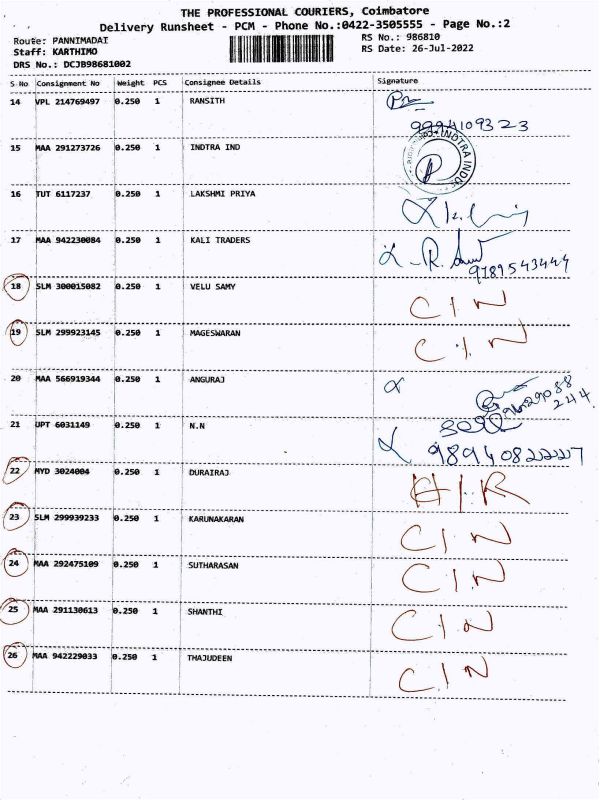 THE PROFESSIONAL COURIERS, Coimbatore
Delivery Runsheet - PCM - Phone No.:0422-3505555 - Page No.:2
Route: PANNIMADAI RS No.: 986810
Staff: KARTHIMO RS Date: 26-Jul-2022
DRS No.: DCJB98681002
S No Consignment No Weight PCS Consignee Details Signature
14 VPL 214769497 0.250 1 RANSITH
9994109323
15 MAA 291273726 0.250 1 INDTRA IND
INDTRA INDUS
16 TUT 6117237 0.250 1 LAKSHMI PRIYA
17 MAA 942230084 0.250 1 KALI TRADERS
9789543444
18 SLM 300015082 0.250 1 VELU SAMY CIN
19 SLM 299923145 0.250 1 MAGESWARAN C.I.N
20 MAA 566919344 0.250 1 ANGURAJ
244
21 UPT 6031149 0.250 1 N.N
22 MYD 3024004 0.250 1 DURAIRAJ H.I.R
23 SLM 299939233 0.250 1 KARUNAKARAN C.I.N
24 MAA 292475109 0.250 1 SUTHARASAN C.I.N
25 MAA 291130613 0.250 1 SHANTHI C.I.N
26 MAA 942229033 0.250 1 THAJUDEEN C.I.N